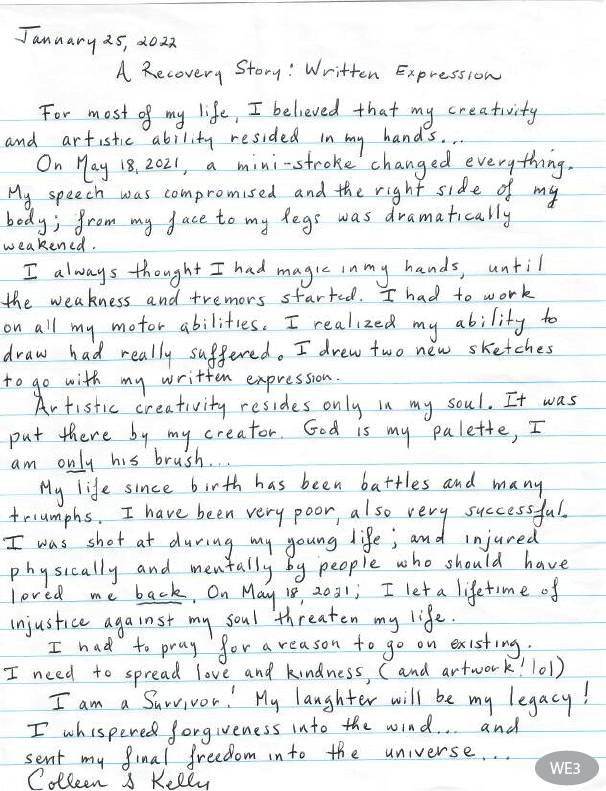 January 25, 2022
A Recovery Story: Written Expression
For most of my life, I believed that my creativity
and artistic ability resided in my hands...
On May 18, 2021, a mini-stroke changed everything.
My speech was compromised and the right side of my
body; from my face to my legs was dramatically
weakened.
I always thought I had magic in my hands, until
the weakness and tremors started. I had to work
on all my motor abilities. I realized my ability to
draw had really suffered. I drew two new sketches
to go with my written expression.
Artistic creativity resides only in my soul. It was
put there by my creator. God is my palette, I
am only his brush...
My life since birth has been battles and many
triumphs. I have been very poor, also very successful.
I was shot at during my young life; and injured
physically and mentally by people who should have
loved me back. On May 18, 2021; I let a lifetime of
injustice against my soul threaten my life.
I had to pray for a reason to go on existing.
I need to spread love and kindness, (and artwork! lol)
I am a Survivor! My laughter will be my legacy!
I whispered forgiveness into the wind... and
sent my final freedom into the universe...
Colleen S Kelly
WE3